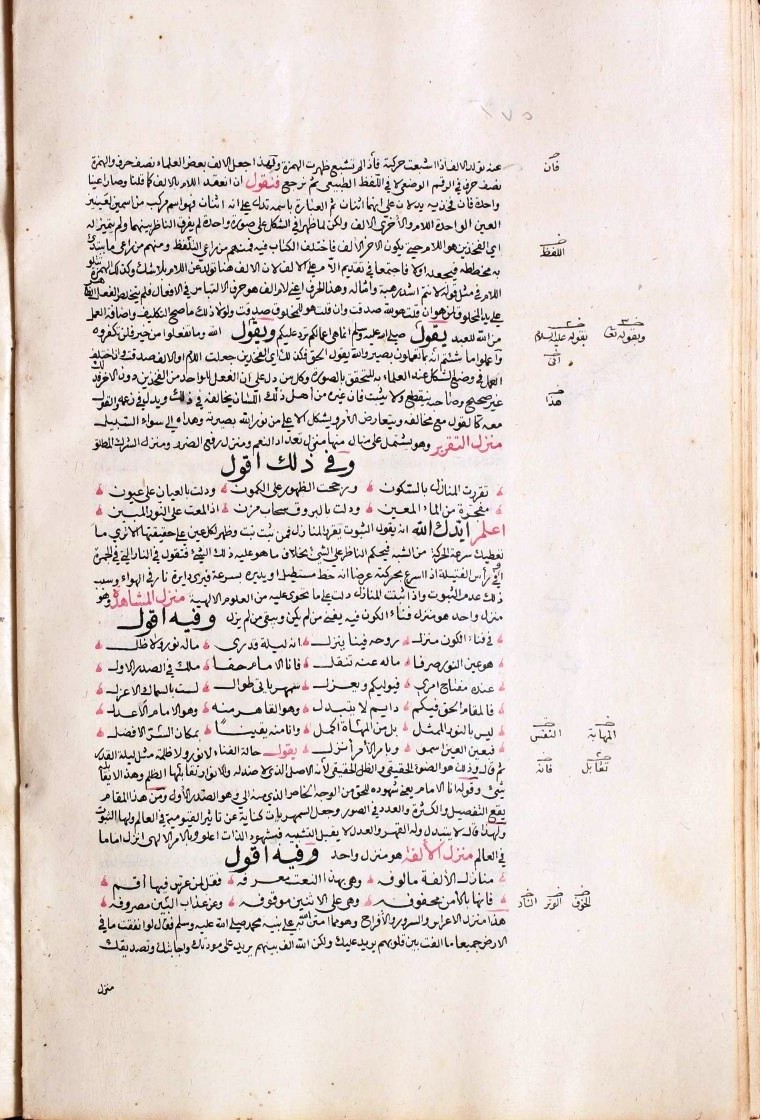 عنه تولد الالف اذا اشبعت حركته فاذا لم تشبع ظهرت الهمزة ولهذا جعل الالف بعض العلماء نصف حرف والهمزة
نصف حرف في الرقم الوضعي لا في اللفظ الطبيعي ثم نرجع فنقول ان انعقد اللام بالالف كما قلنا وصارا عينا
واحدة فان فخذيه يدلان على انهما اثنان ثم العبارة باسمه تدل على انه اثنان فهو اسم مركب من اسمين لعينين
العين الواحدة اللام والأخرى الالف ولكن لما ظهرا في الشكل على صورة واحدة لم يفرق الناظر بينهما ولم يتميز له
اي الفخذين هو اللام حتى يكون الاخر الالف فاختلف الكتاب فيه فمنهم من راعى التلفظ ومنهم من راعى ما يبتدئ
به مخططه فيجعله اولا فاجتمعا في تقديم اللام على الالف لان الالف هنا تولد عن اللام بلا شك وكذلك الهمزة تتلو
اللام في مثل قوله لانتم اشد رهبة وامثاله وهذا الحرف اعني لام الف هو حرف الالتباس في الافعال فلم يتخلص الفعل الظاهر
على يد المخلوق لمن هو ان قلت هو لله صدقت وان قلت هو للمخلوق صدقت ولولا ذلك ما صح التكليف واضافة العمل
من الله للعبد يقول صلى الله عليه وسلم انما هي اعمالكم ترد عليكم ويقول الله وما تفعلوا من خير فلن تكفروه
واعملوا ما شئتم انه بما تعملون بصير والله يقول الحق فكذلك اي الفخذين جعلت اللام او الالف صدقت وان اختلف
العمل في وضع الشكل عند العلماء به للتحقق بالصورة وكل من دل على ان الفعل للواحد من الفخذين دون الاخر فذلك
غير صحيح وصاحبه ينقطع ولا يثبت فان غيره من اهل ذلك الشان يخالفه في ذلك ويدلي في زعمه والقول
معه كالقول مع مخالفه ويتعارض الأمر ويشكل الا على من نور الله بصيرته وهداه الى سواء السبيل
منزل التقرير وهو يشتمل على منازل منها منزل تعداد النعم ومنزل رفع الضرر ومنزل الشرك المطلق
وفي ذلك اقول
تقررت المنازل بالسكون ورجحت الظهور على الكمون ودلت بالعيان على عيون
مفجرة من الماء المعين ودلت بالبروق سحاب مزن اذا لمعت على النور المبين
اعلم ايدك الله انه يقول الثبوت يقرر المنازل فمن ثبت ثبت وظهر لكل عين على حقيقتها الا ترى ما
تعطيك سرعة الحركة من الشبه فيحكم الناظر على الشئ بخلاف ما هو عليه ذلك الشئ فنقول في النار التي في الجمرة
او في رأس الفتيلة اذا اسرع بحركته عرضا انه خط مستطيل او يديره بسرعة فيرى دايرة نار في الهواء وسبب
ذلك عدم الثبوت واذا ثبتت المنازل دلت على ما تحوي عليه من العلوم الالهية منزل المشاهدة وهو
منزل واحد هو منزل فناء الكون فيه يفنى من لم يكن ويبقى من لم يزل وفيه اقول
في فناء الكون منزل روحه فينا ينزل انه ليلة قدري ماله نور ولا ظل
هو عين النور صرفا ماله عنه تنقل فانا الامام حقا ملك في الصدر الاول
عنده مفتاح امري فيوليكم ويعزل سمهرياتي طوال لست بالسماك الاعزل
فالمقام الحق فيكم دايم لا يتبدل وهو القاهر منه وهو الامام الأعدل
ليس بالنور الممثل بل من المهاة اكمل وانا منه يقينا بمكان السر الافضل
فبعين العين اسمو وبامر الأمر انزل يقول حالة الفناء لا نور ولا ظلمة مثل ليلة القدر
ثم قال وذلك هو الضوء الحقيقي والظل الحقيقي لأنه الاصل الذي لا ضد له والانوار تقابلها الظلم وهذا لا يقابله
شئ وقوله انا الامام يعني شهوده للحق من الوجه الخاص الذي منه الي وهو الصدر الأول ومن هذا المقام
يقع التفصيل والكثرة والعدد في الصور وجعل السمهريات كناية عن تاثير القيومية في العالم ولها الثبوت
ولهذا قال لا يتبدل وله القهر والعدل لا يقبل التشبيه فبشهود الذات اعلو وبالامر الالهي انزل اماما
في العالم منزل الألفة هو منزل واحد وفيه اقول
منازل الألفة مالوفه وهي بهذا النعت معروفه فقل لمن عرس فيها أقم
فانها بالأمن محفوفه وهي على الاثنين موقوفه وعن عذاب البين مصروفه
هذا منزل الاعراس والسرور والأفراح وهو مما امتن الله به على نبيه محمد صلى الله عليه وسلم فقال لو انفقت ما في
الارض جميعا ما الفت بين قلوبهم يريد عليك ولكن الله الف بينهم يريد على مودتك واجابتك وتصديقك
منزل
فان
اللفظ
ويقوله تعا يقوله عليه السلام
اني
هذا
المهابة النفس
تقابل فانه
للخوف الوتر